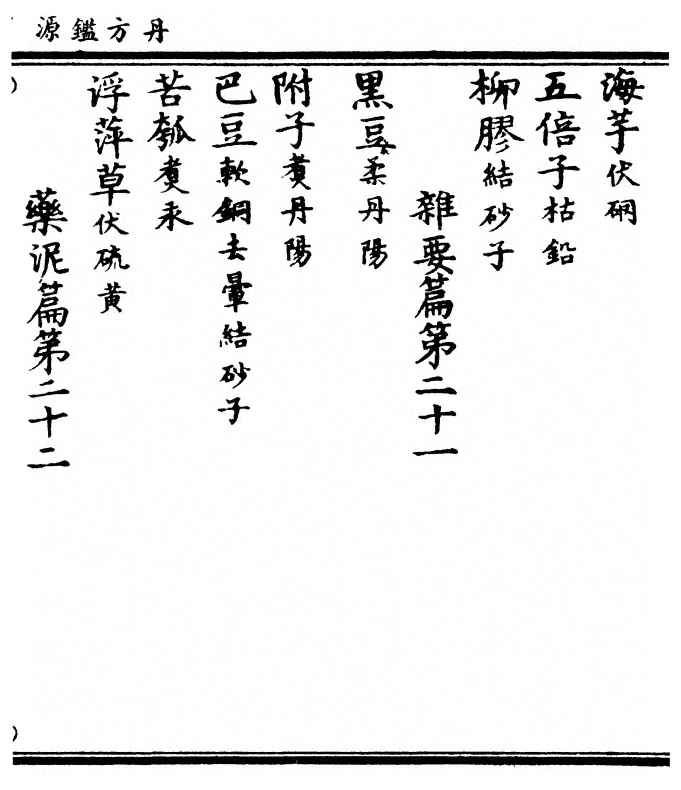 丹方鑑源
海芋伏硇
五倍子枯鉛
柳膠結砂子
雜要篇第二十一
黑豆柔丹陽
附子煑丹陽
巴豆軟銅去暈結砂子
苦瓠煑汞
浮萍草伏硫黄
藥泥篇第二十二